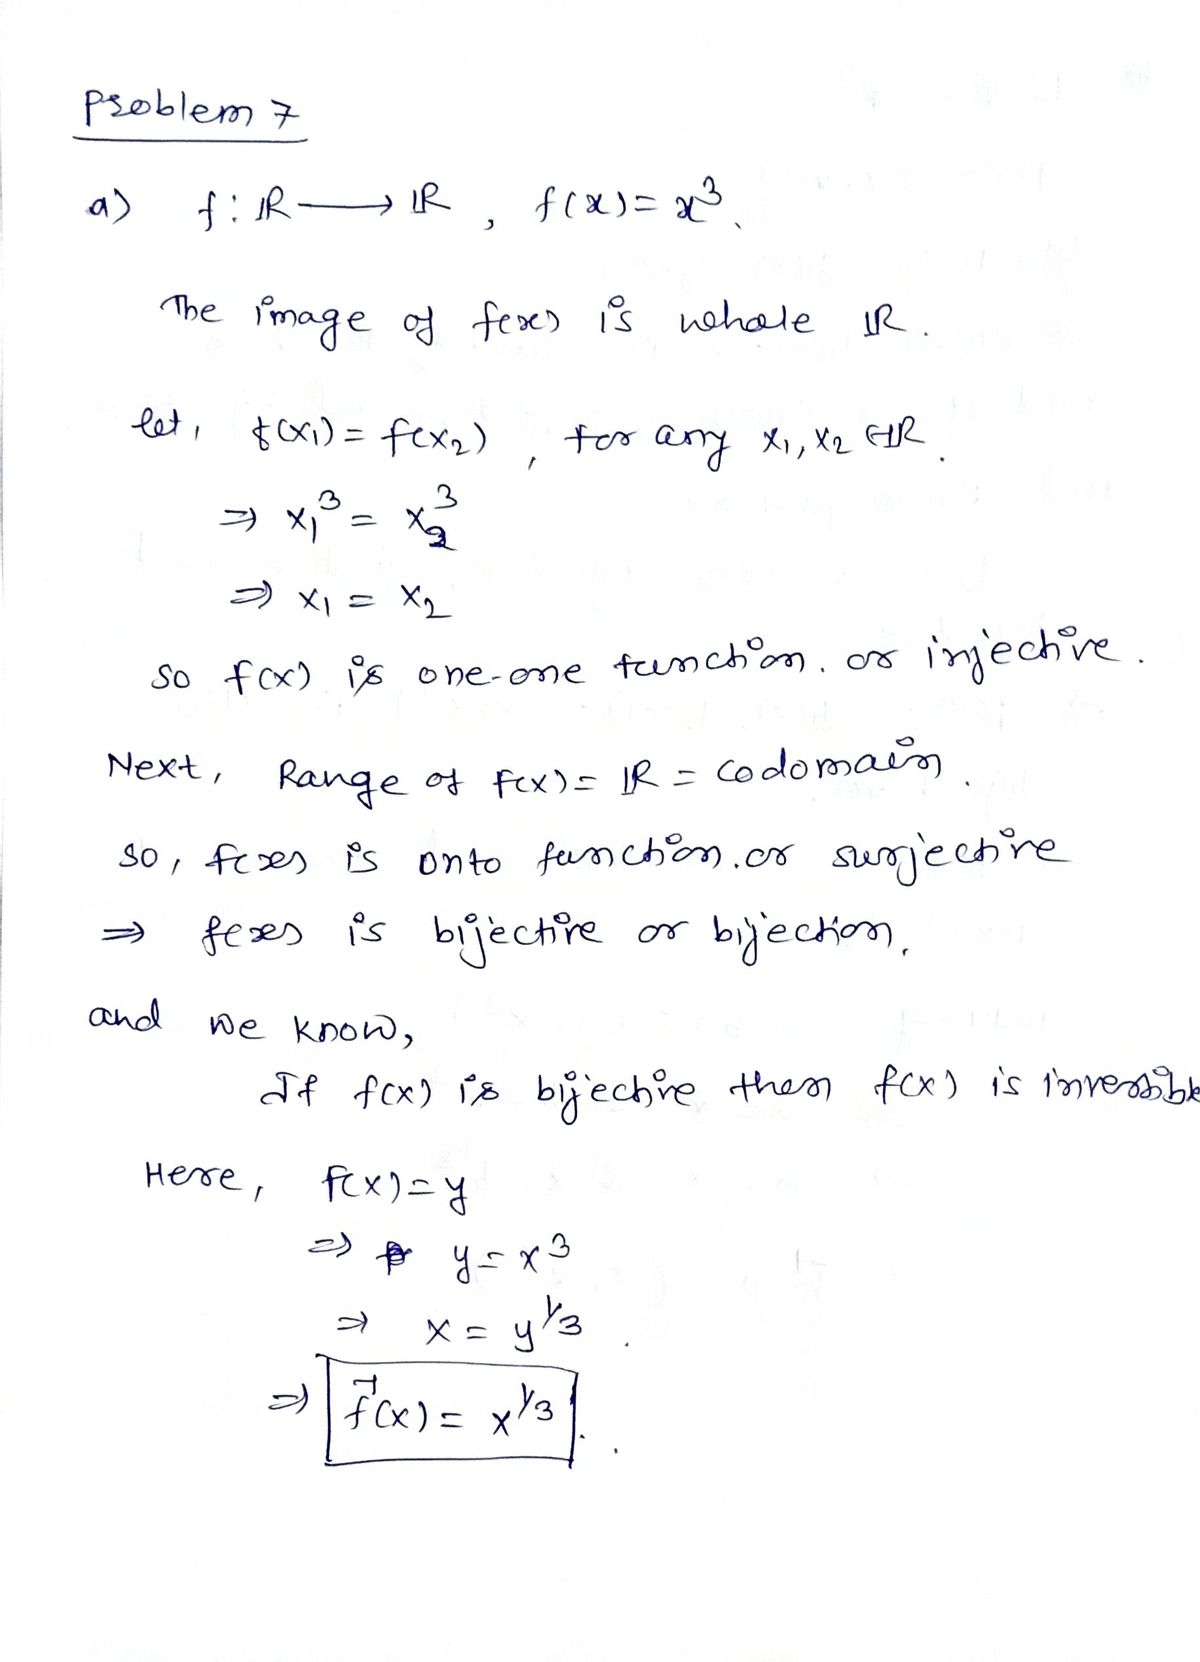 Problem 7
a) f: ℝ ⟶ ℝ , f(x) = x³.
The image of f(x) is whole ℝ.
let, f(x₁) = f(x₂) , for any x₁, x₂ ∈ ℝ.
⇒ x₁³ = x₂³
⇒ x₁ = x₂
So f(x) is one-one function. or injective.
Next, Range of f(x) = ℝ = codomain.
So, f(x) is onto function. or surjective
⇒ f(x) is bijective or bijection.
and we know,
If f(x) is bijective then f(x) is inversible
Here, f(x) = y
⇒ y = x³
⇒ x = y^1/3.
⇒ f⁻¹(x) = x^1/3.